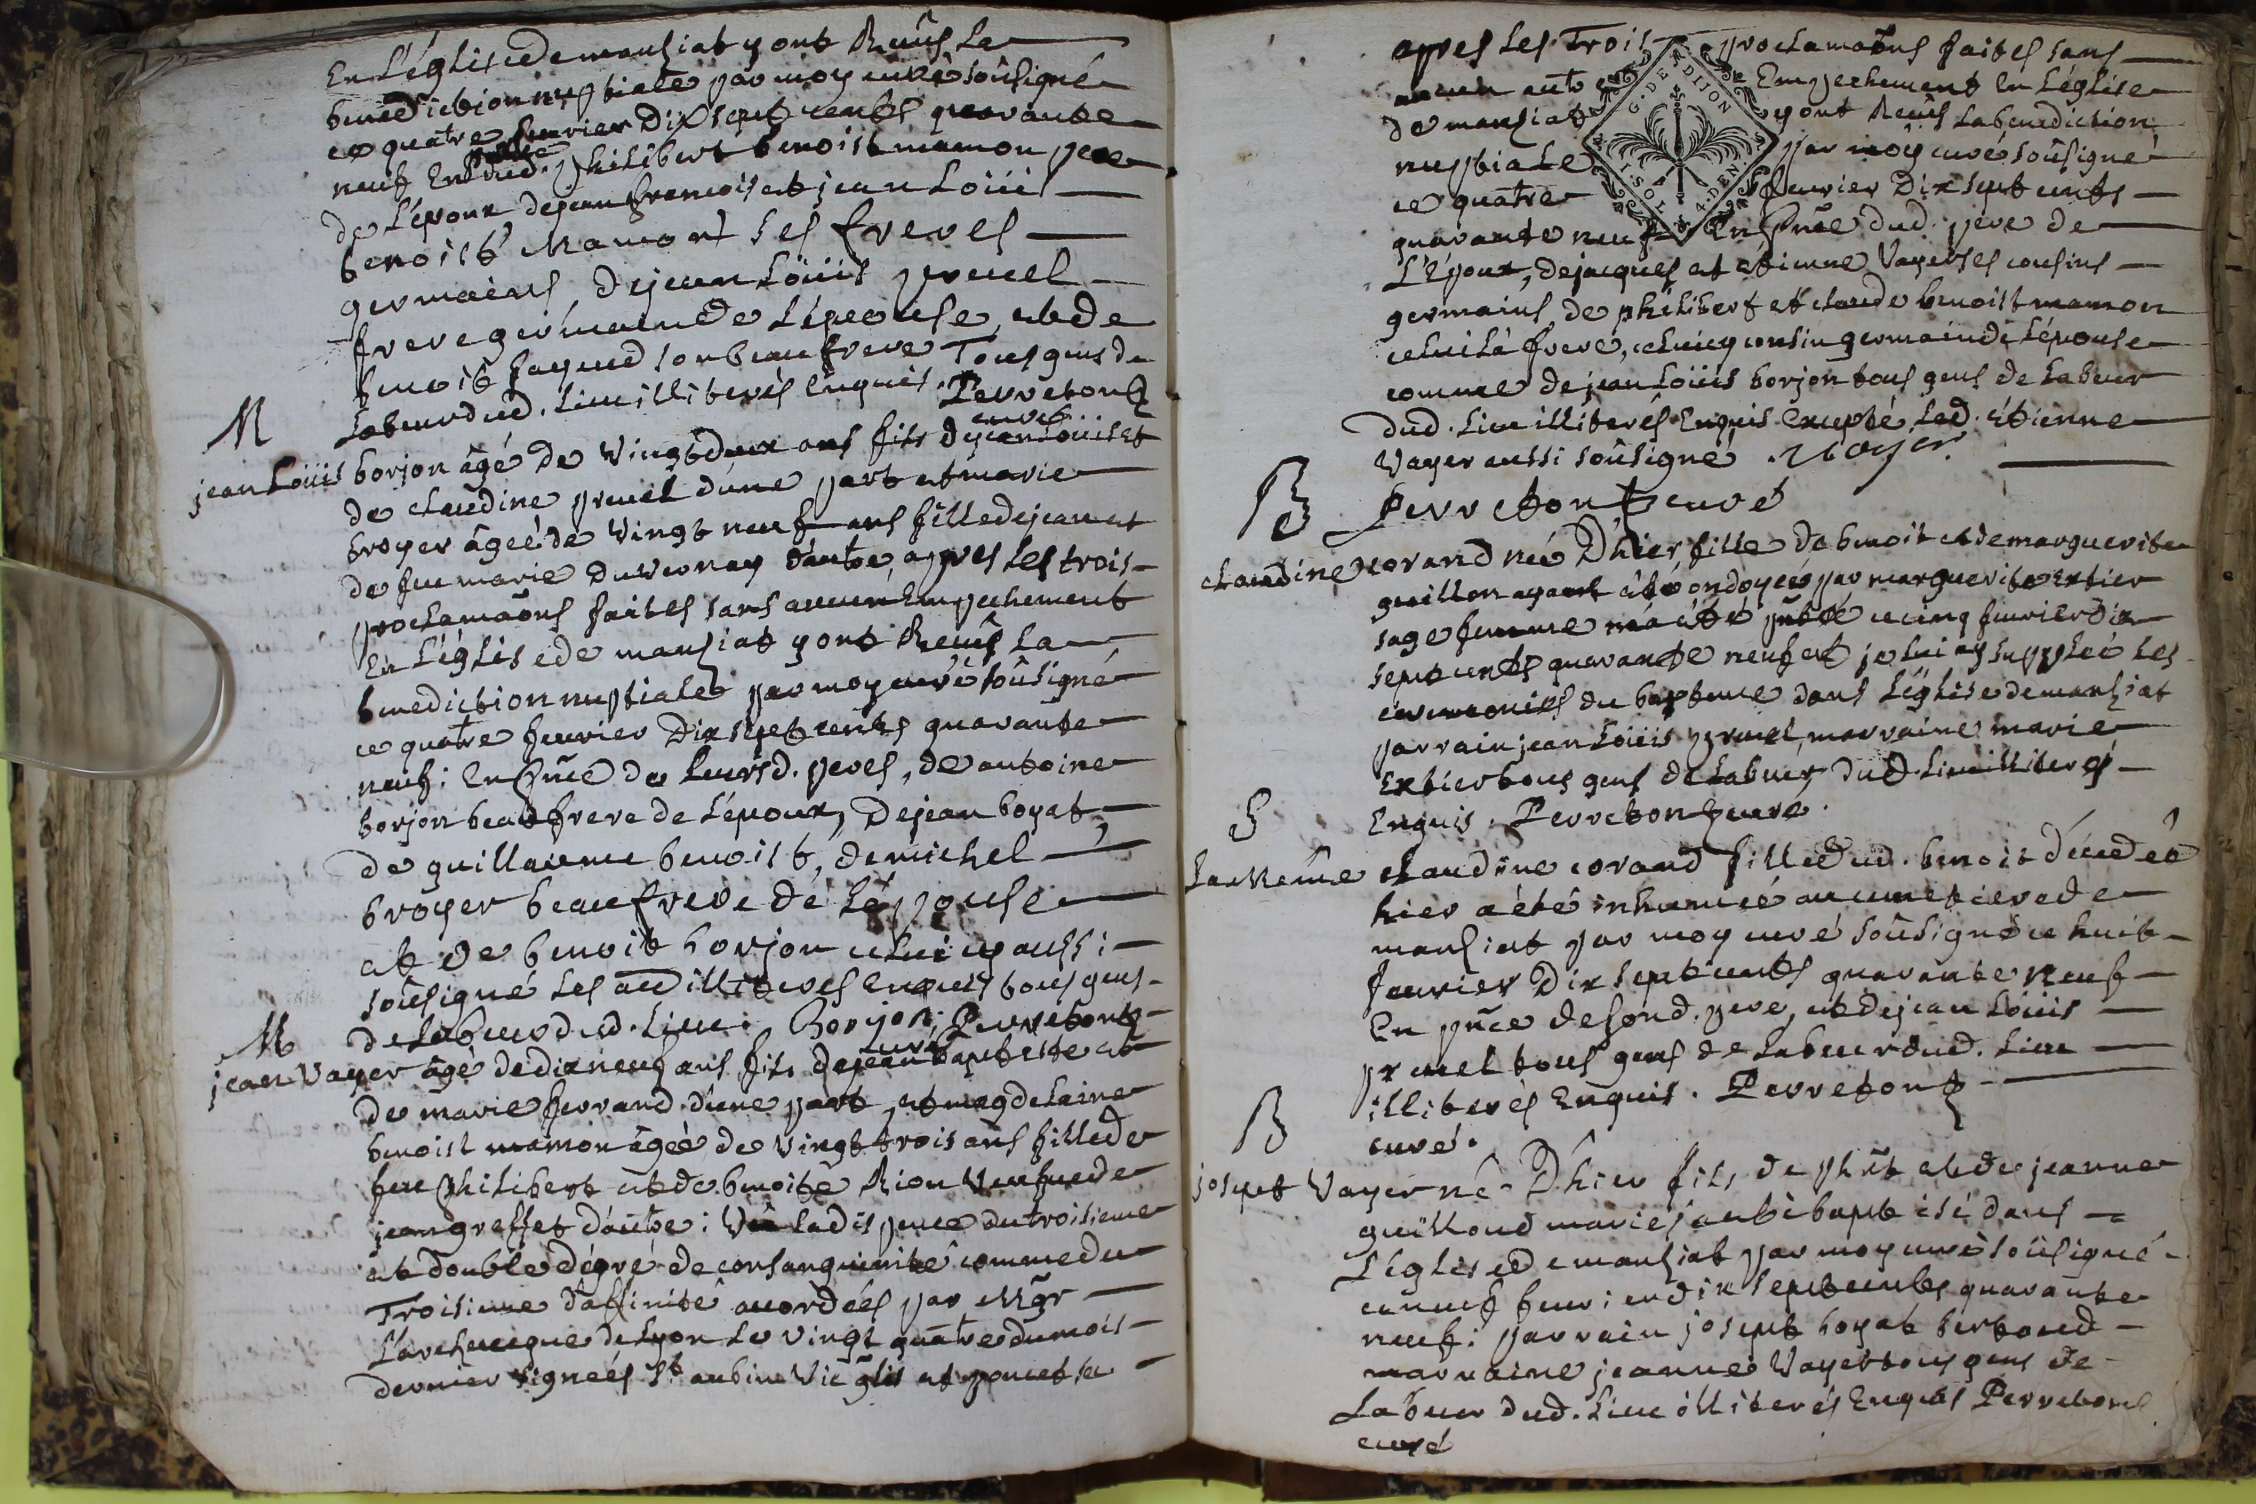 En L'église de manziat y ont Reçûs La
benediction nuptiale par moy curé soûsigné
ce quatre fevrier Dix sept cents quarante
neuf En dud. philibert benoist mamon pere
de L'epoux de jean francois et jean Loüis
benoist Mamon ses freres
germains, de jean Loüis pruel
frere germain de L'épouse, et de
benoit son beau frere Tous gens de
Labeur dud. Lieu illiterés Enquis. Perreton
curé
M
jean Loüis borjon âgé de vingt deux ans fils de jean Loüis et
de claudine pruel d'une part et marie
broyer âgeé de vingt neuf ans fille de jean et
de feu marie duvernay d'autre, appres Les trois
proclamãons faites sans aucun Empechement
En L'église de manziat y ont Reçûs La
benediction nuptiale par moy curé soûsigné
ce quatre fevrier Dix sept cents quarante
neuf: En pñce de leursd. peres, de antoine
borjon beau frere de L'époux, de jean boyat
de guillaume benoist, de michel
broyer beau frere de L'épouse
et de benoit borjon celui cy aussi
soûsigné Les aũ illiterés Enquis tous gens
de Labeur dud. Lieu: Borjon. Perreton
curé
M
jean Vayer âgé de dix neuf ans fils de jean baptiste et
de marie ferrand d'une part, et magdelaine
benoist mamon âgeé de vingt trois ans fille de
feu philibert et de benoite Rion veufve de
jean greffet d'autre: Vû La dispence du troisieme
et double dégré de consanguinité comme du
Troisieme d'affinité accordeés par Mgr
L'archeveque de Lyon Le vingt quatre du mois
dernier signeés St aubin Vic glis et poncet se
appres Les Trois proclamãons faites sans
aucun autre Empechement En L'église
de manziat y ont Reçûs La benediction
nuptiale par moy curé soûsigné
ce quatre fevrier Dix sept cents
quarante neuf En pñce dud. pere de
L'Époux, de jacques et étienne Vayer ses cousins
germains, de philibert et claude benoist mamon
celui Là frere, celuicy cousin germain de L'épouse
comme de jean Loüis borjon tous gens de Labeur
dud. Lieu illiterés Enquis Excepté Led. étienne
Vayer aussi soûsigné. Voyer.
Perreton curé
G. DE DIJON
1. SOL 4. DEN.
B
claudine corand née D'hier fille de benoit et de marguerite
guillon ayant été ondoyeé par marguerite Extier
sage femme ce cinq fevrier dix
sept cents quarante neuf et je lui ay suppleé Les
ceremonies du baptême dans L'église de manziat
parrain jean Loüis pruel, marraine marie
Extier tous gens de Labeur dud. Lieu illiterés
Enquis. Perreton curé.
S
La Même claudine corand fille dud. benoit décedeé
hier a été inhumeé au cimetiere de
manziat par moy curé soûsigné ce huit
fevrier Dix sept cents quarante neuf
En pñce de sond. pere, et de jean Loüis
pruel tous gens de Labeur dud. Lieu
illiterés Enquis. Perreton
curé.
B
josept Vayer né D'hier fils de phũt et de jeanne
guilloud mariés a été baptisé dans
L'église de manziat par moy curé soûsigné
ce neuf fevrier dix sept cents quarante
neuf: parrain josept boyat bertoud
marraine jeanne Vayer tous gens de
Labeur dud. Lieu illiterés Enquis Perreton
curé